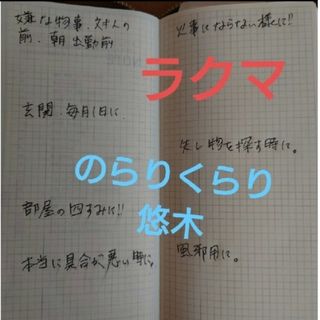 嫌な物事、対人の
前、朝 出勤前
玄関、毎月1日に
部屋の四すみに!!
本当に具合が悪い時に。
火事にならない様に!!
失し物を探す時に。
風邪用に。
ラクマ
のらりくらり
悠木